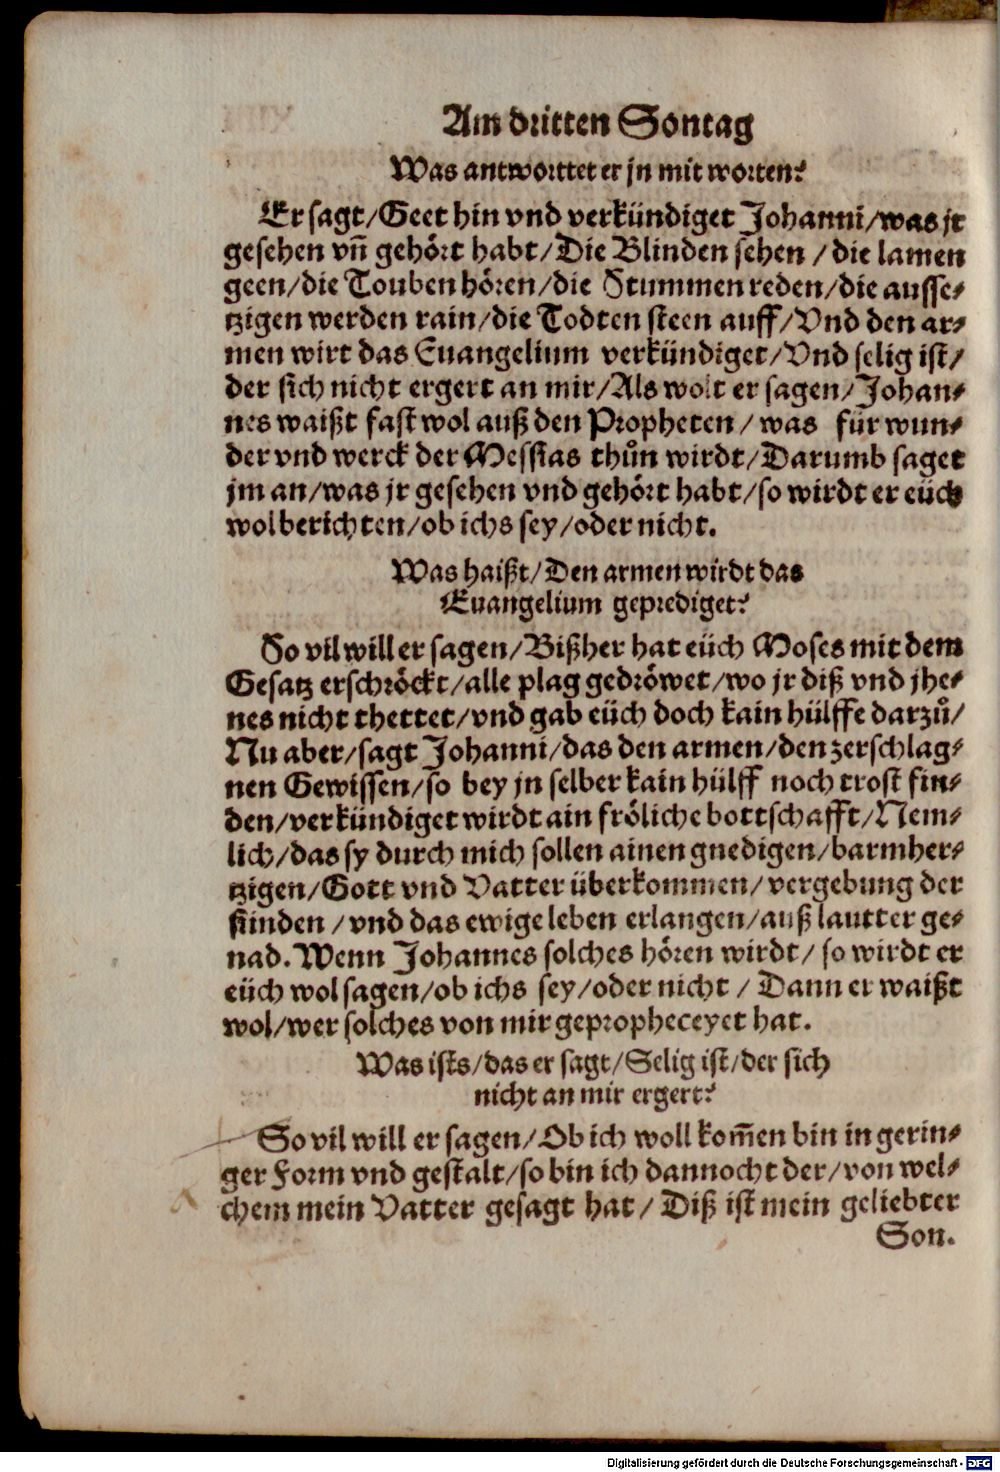 Am dritten Sontag
Was antworttet er jn mit worten?
Er sagt/Geet hin vnd verkündiget Johanni/was jr
gesehen vñ gehört habt/Die Blinden sehen /die lamen
geen/die Touben hören/die Stummen reden/die ausse-
tzigen werden rain/die Todten steen auff/Vnd den ar-
men wirt das Euangelium verkündiget/Vnd selig ist/
der sich nicht ergert an mir/Als wolt er sagen/Johan-
nes waißt fast wol auß den Propheten/ was für wun-
der vnd werck der Messias thůn wirdt/Darumb saget
jm an/was jr gesehen vnd gehört habt/so wirdt er eüch
wol berichten/ob ichs sey/oder nicht.
Was haißt/Den armen wirdt das
Euangelium geprediget?
So vil will er sagen/Bißher hat eüch Moses mit dem
Gesatz erschröckt/alle plag gedröwet/wo jr diß vnd jhe-
nes nicht thettet/vnd gab eüch doch kain hülffe darzů/
Nu aber/sagt Johanni/das den armen/den zerschlag-
nen Gewissen/so bey jn selber kain hülff noch trost fin-
den/verkündiget wirdt ain fröliche bottschafft/Nem-
lich/das sy durch mich sollen ainen gnedigen/barmher-
tzigen/Gott vnd Vatter überkommen/vergebung der
sünden /vnd das ewige leben erlangen/auß lautter ge-
nad. Wenn Johannes solches hören wirdt/ so wirdt er
eüch wol sagen/ob ichs sey/oder nicht / Dann er waißt
wol/wer solches von mir gepropheceyet hat.
Was ists/das er sagt/Selig ist/der sich
nicht an mir ergert?
So vil will er sagen/Ob ich woll kom̃en bin in gerin-
ger Form vnd gestalt/so bin ich dannocht der/von wel-
chem mein Vatter gesagt hat/ Diß ist mein geliebter
Son.
Digitalisierung gefördert durch die Deutsche Forschungsgemeinschaft - DFG